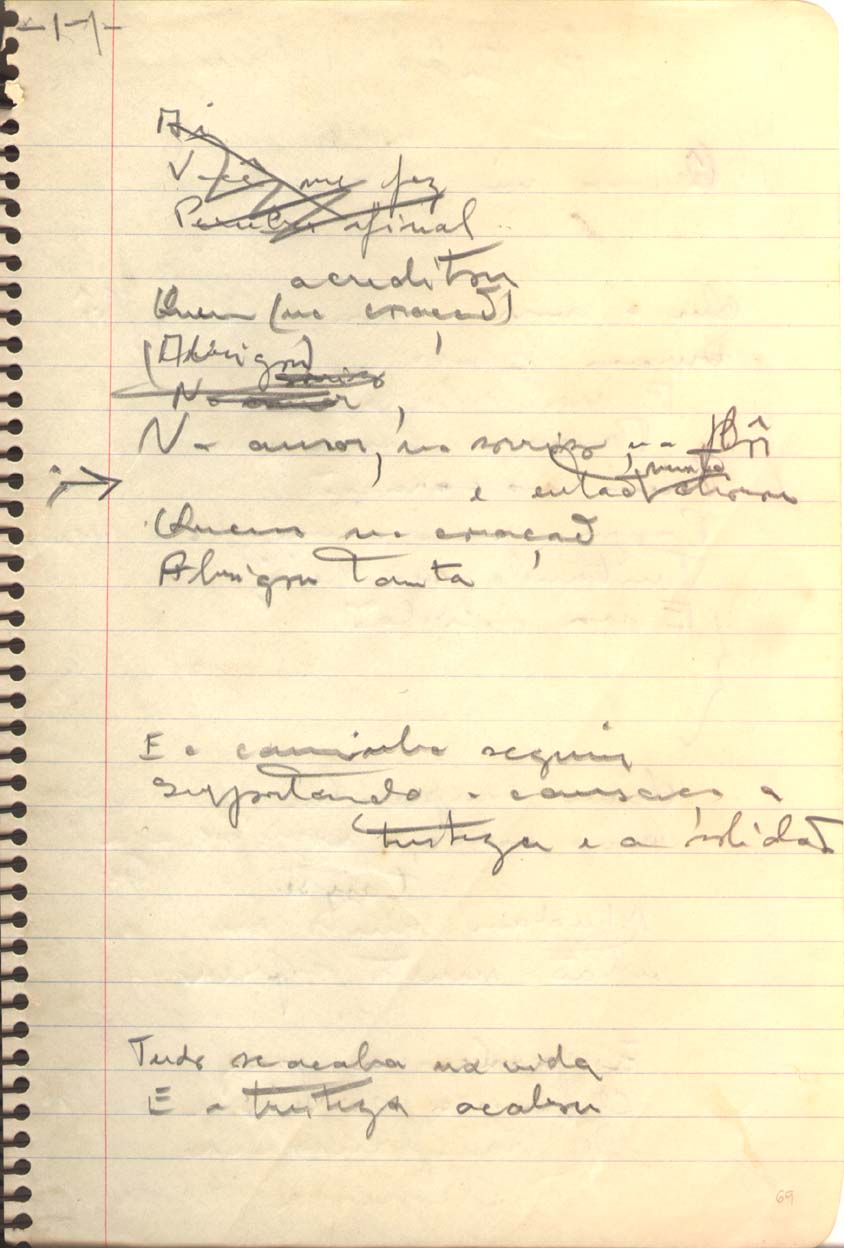 -1-1-
Ai
Você me fez
Perceber afinal
acreditou
Quem (no coração)
(Abrigou)
sorriso
No amor,
No amor, no sorriso, na flôr
e então, nunca chorou
Quem no coração
Abrigou tanta
E o caminho seguiu
Suportando o cansaço a
tristeza e a solidão
Tudo se acaba na vida
E a tristeza acabou
69